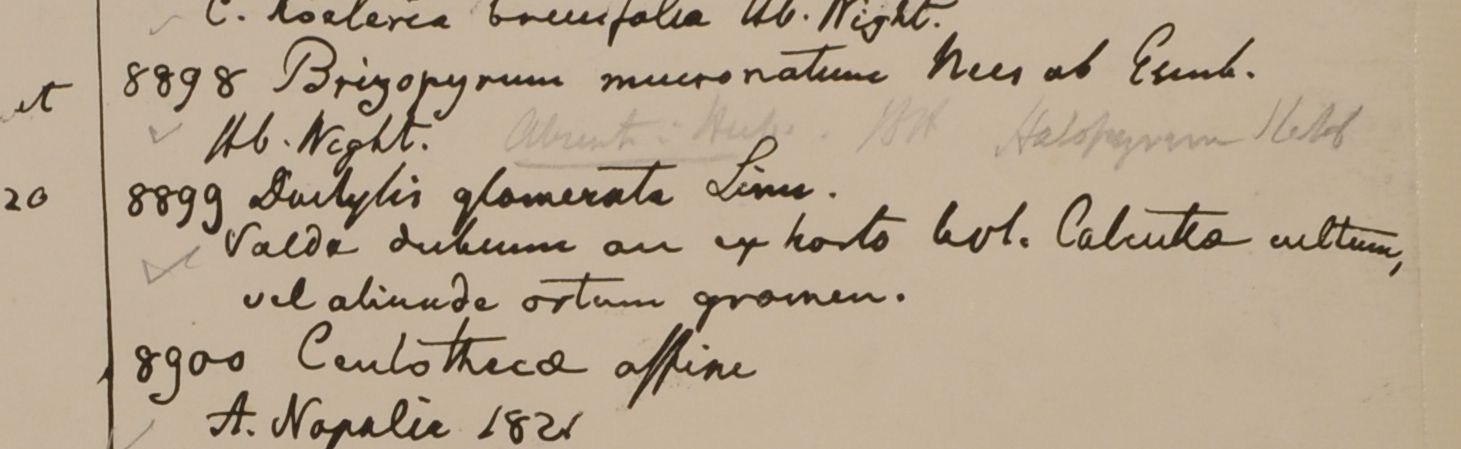 C. Koeleria brevifolia Hb. Wight.
et
8898 Brizopyrum mucronatum Nees ab Esenb.
Hb. Wight. Absent: Herb. Halopyrum
20
8899 Dactylis glomerata Linn.
Valde dubium an ex horto bot. Calcutta cultum,
vel aliunde ortum gramen.
8900 Centothecæ affine
A. Napalia 1821